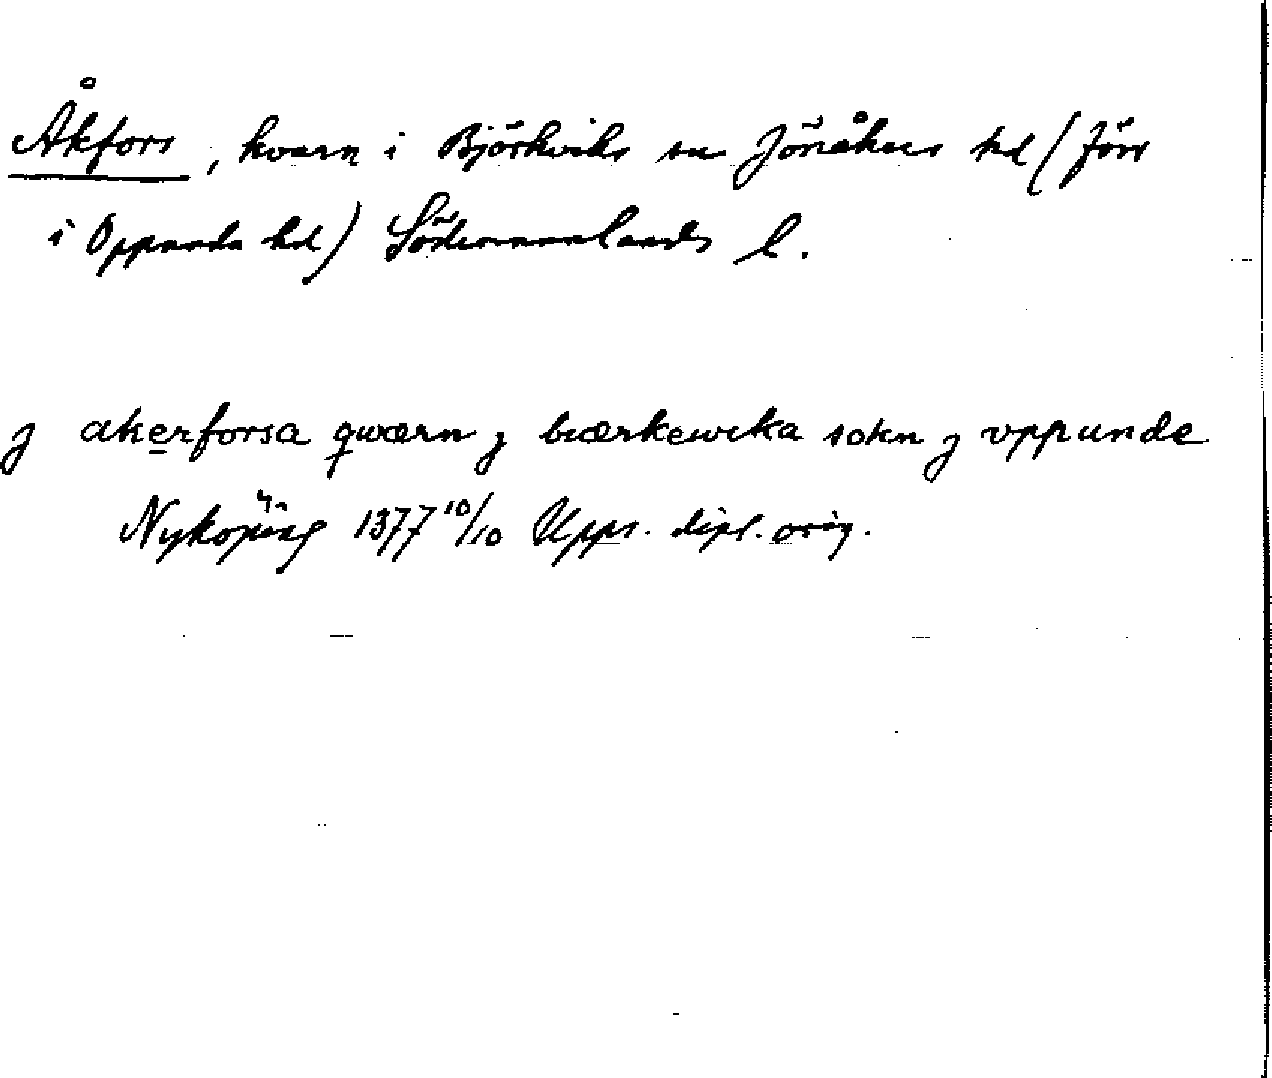 Åkfors, kvarn i Björkviks sn Jönåkers hd (förr
i Oppunda hd) Södermanlands l.
j akerforsa qwærn j biærkewika sokn j vppunde
Nyköping 1377 10/10 Upps. dipl. orig.